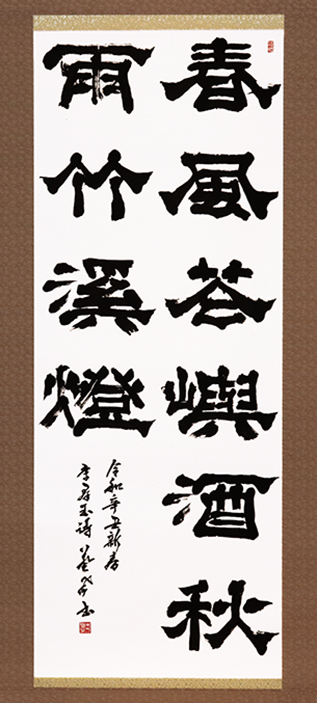 春風花嶼酒秋
雨竹溪燈
令和辛丑新春
李群玉詩 書